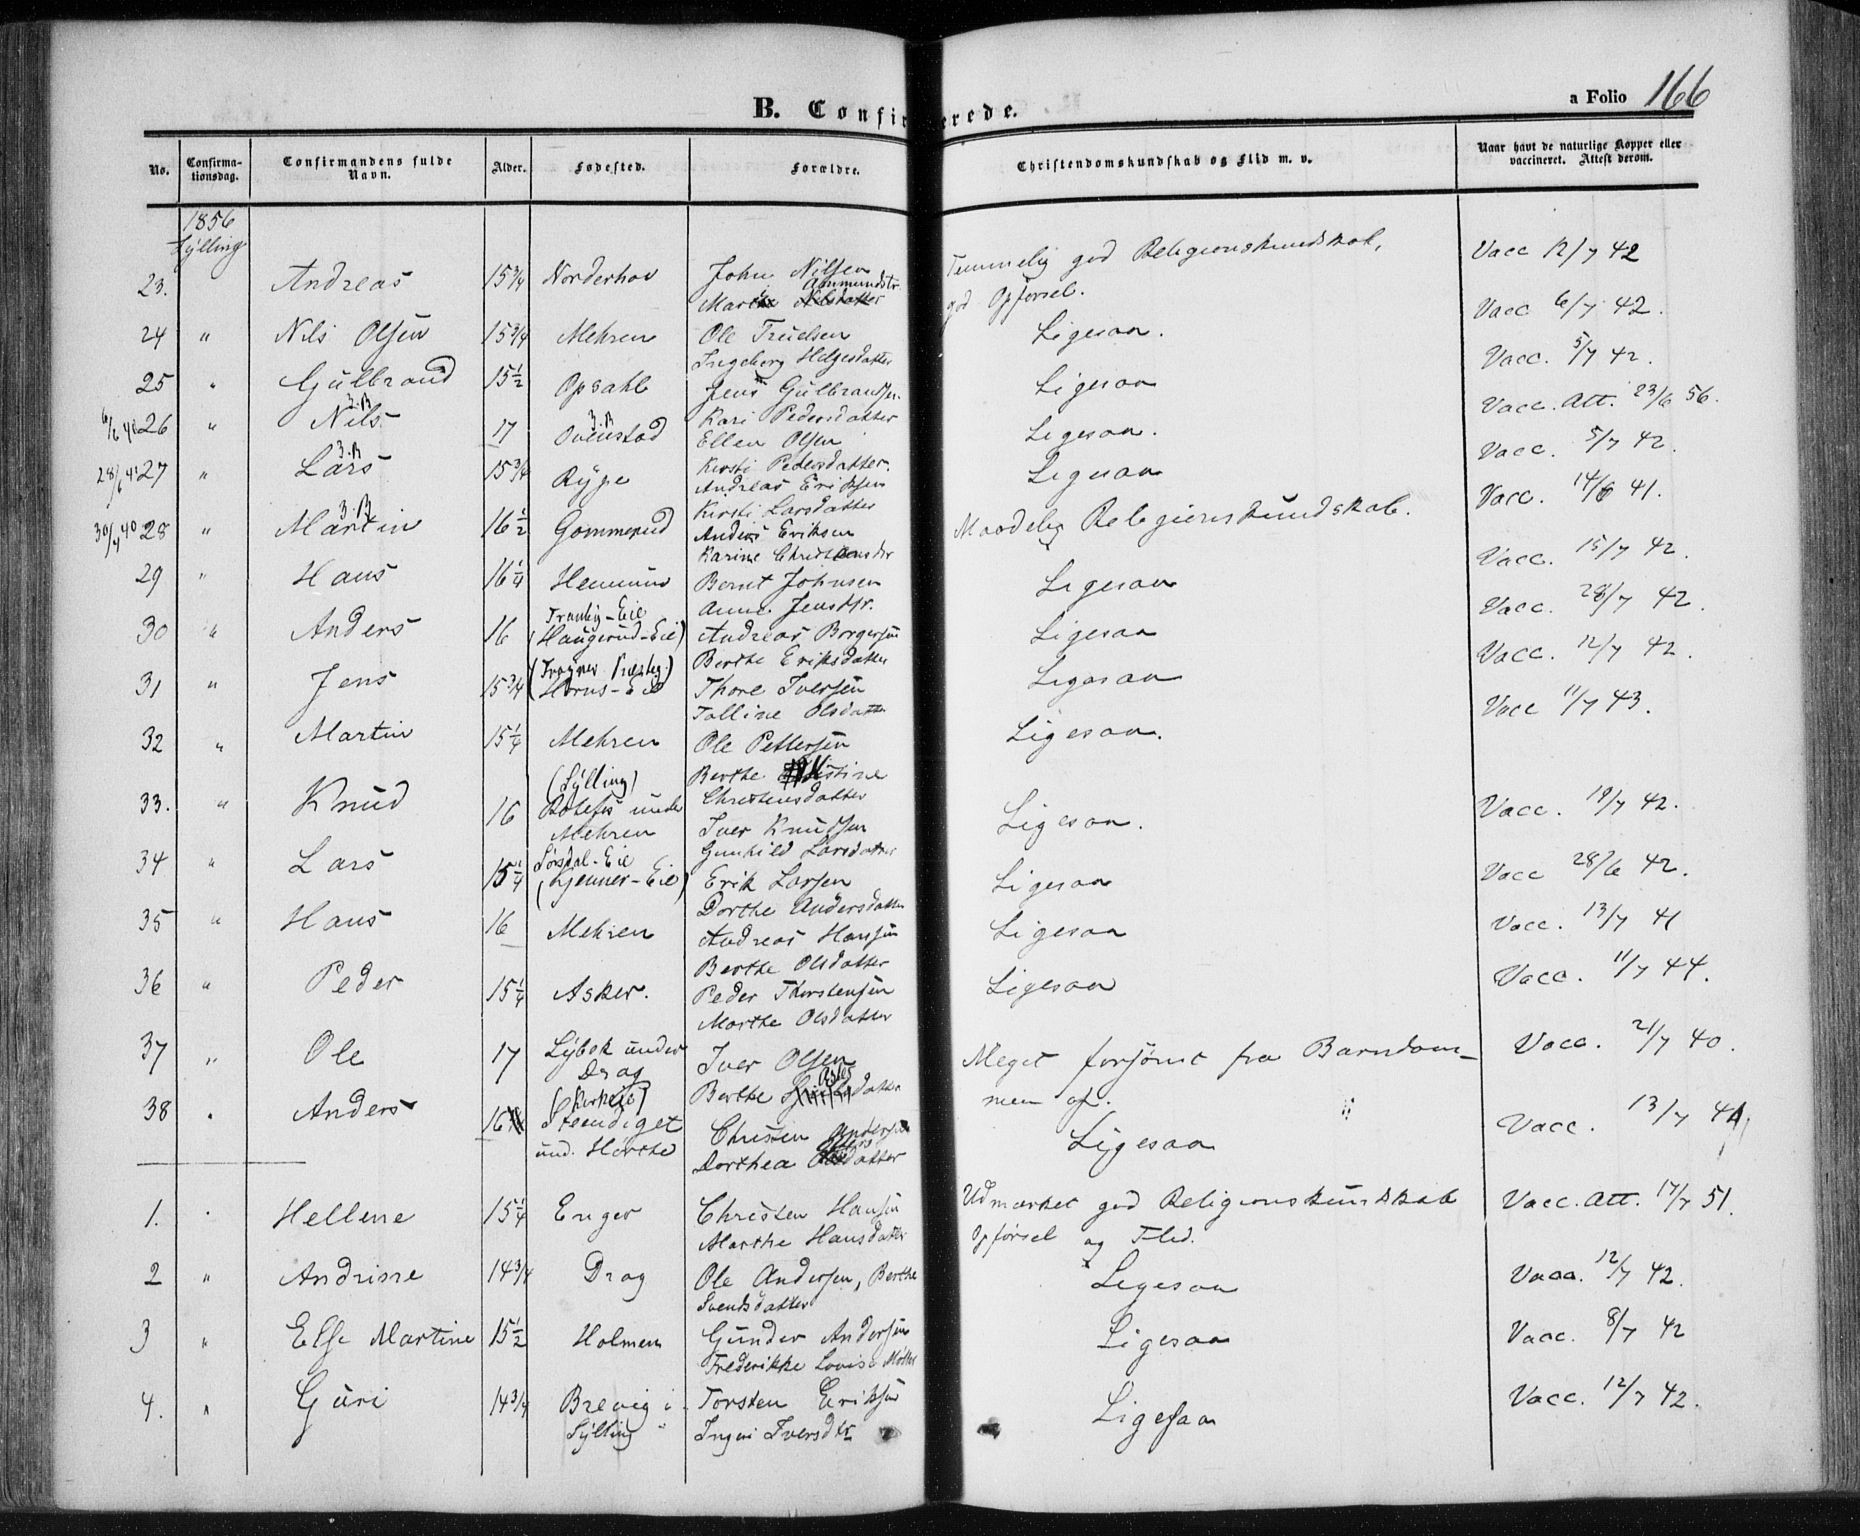 B. Confirmerede.
a Folio 166
No. Confirmationsdag. Confirmandens fulde Navn. Alder. Fødested. Forældre. Christendomskundskab og Flid m. v. Naar havt de naturlige Kopper eller vaccineret. Attest derom.
1856
Sylling
23. Andreas 15 3/4 Norderhov John Nilsen Temmelig god Religionskundskab, Vacc 12/7 42
Aamundsdtr.
god Opførsel.
24 " Nils Olsen 15 3/4 Mehren Ole Truelsen Ligesaa. Vacc 6/7 42.
Ingeborg Helgesdatter
25 " Gulbrand 15 1/2 Opsahl Jens Gulbrandsen Ligesaa Vacc. 5/7 42.
Kari Pedersdatter
6/6 40 26 " Nils 17 Svenstad Ellen Olsen Ligesaa. Vacc. Att. 23/6 56.
Kirsti Pedersdatter.
28/6 41 27 " Lars 15 3/4 Rype Andreas Eriksen Ligesaa Vacc. 5/7 42.
Kirsti Larsdatter
30/4 40 28 " Martin 16 1/2 Gommerud Anders Eriksen Maadelig Religionskundskab. Vacc. 14/6 41.
Karine Christensdr
29 " Hans 16 1/4 Hennum Bernt Johnsen Ligesaa Vacc. 15/7 42.
Anne Jensdtr.
Tranby-Eie
30 " Anders 16 (Haugerud-Eie) Andreas Borgersen Ligesaa Vacc. 28/7 42.
Berthe Eriksdatter
31 " Jens 15 3/4 Horns-Eie Thore Iversen Ligesaa Vacc. 12/7 42.
Olsdatter
32 " Martin 15 1/4 Mehren Ole Pettersen Ligesaa. Vacc 11/7 43.
Berthe
(Sylling) Christensdatter
33. " Knud 16 under Mehren Iver Knudsen Ligesaa. Vacc. 19/7 42.
Gunhild Larsdatter
34 " Lars 15 1/4 Sørsdal-Eie (Gjenner-Eie) Erik Larsen Ligesaa Vacc 28/6 42.
Dorthe Andersdatter
35 " Hans 16 Mehren Andreas Hansen Ligesaa Vacc. 13/7 41
Berthe Olsdatter
36 " Peder 15 1/4 Asker. Peder Thorstensen Ligesaa Vacc. 11/7 44.
Marthe Olsdatter
37 " Ole 17 Lybek under Drag Iver Olsen Meget forsømt fra Barndom- Vacc. 21/7 40.
Berthe men af.
38 " Anders 16 Steendiget und. Hørthe Christen Andersen Ligesaa Vacc. 13/7 41
Dorthea
1. " Hellene 15 1/4 Enger Christen Hansen Udmærket god Religionskundskab Vacc. Att. 17/7 51.
Marthe Hansdatter Opførsel og Flid.
2 " Andrine 14 3/4 Drag Ole Andersen, Berthe Ligesaa Vacc. 12/7 42.
Svendsdatter
3 " Else Martine 15 1/2 Holmen Gunder Andersen Ligesaa Vacc. 8/7 42
Frederikke Lovise Møller
4. " Guri 14 3/4 Brevig i Torsten Eriksen Ligesaa Vacc. 12/7 42.
Sylling Ingri Iversdtr